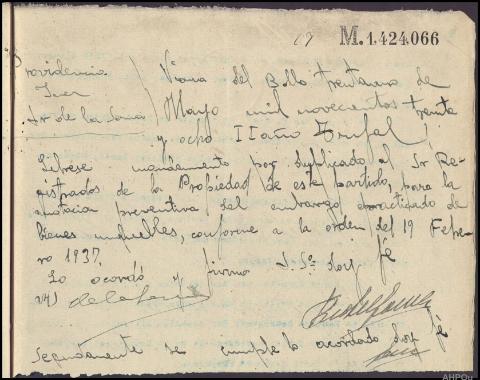 19 M.1.424,066
rovidencia
Juez
Sr de la Loma
Viana del Bollo treintauno de
Mayo mil novecientos treinta
y ocho II año Triunfal.
Librese mandamiento por duplicado al Sr Re-
gistrador de la Propiedad de este partido, para la
anotacion preventiva del embargo practicado de
bienes inmuebles, conforme a la orden del 19 Febre-
ro 1937.
Lo acordó y firma S.Sª doy fé
Seguidamente se cumple lo acordado doy fé
AHPOu